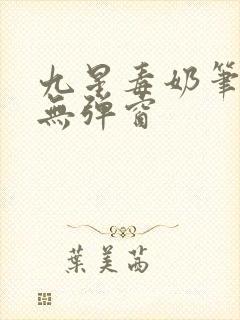 九星毒奶筆
無彈窗
葉美茜